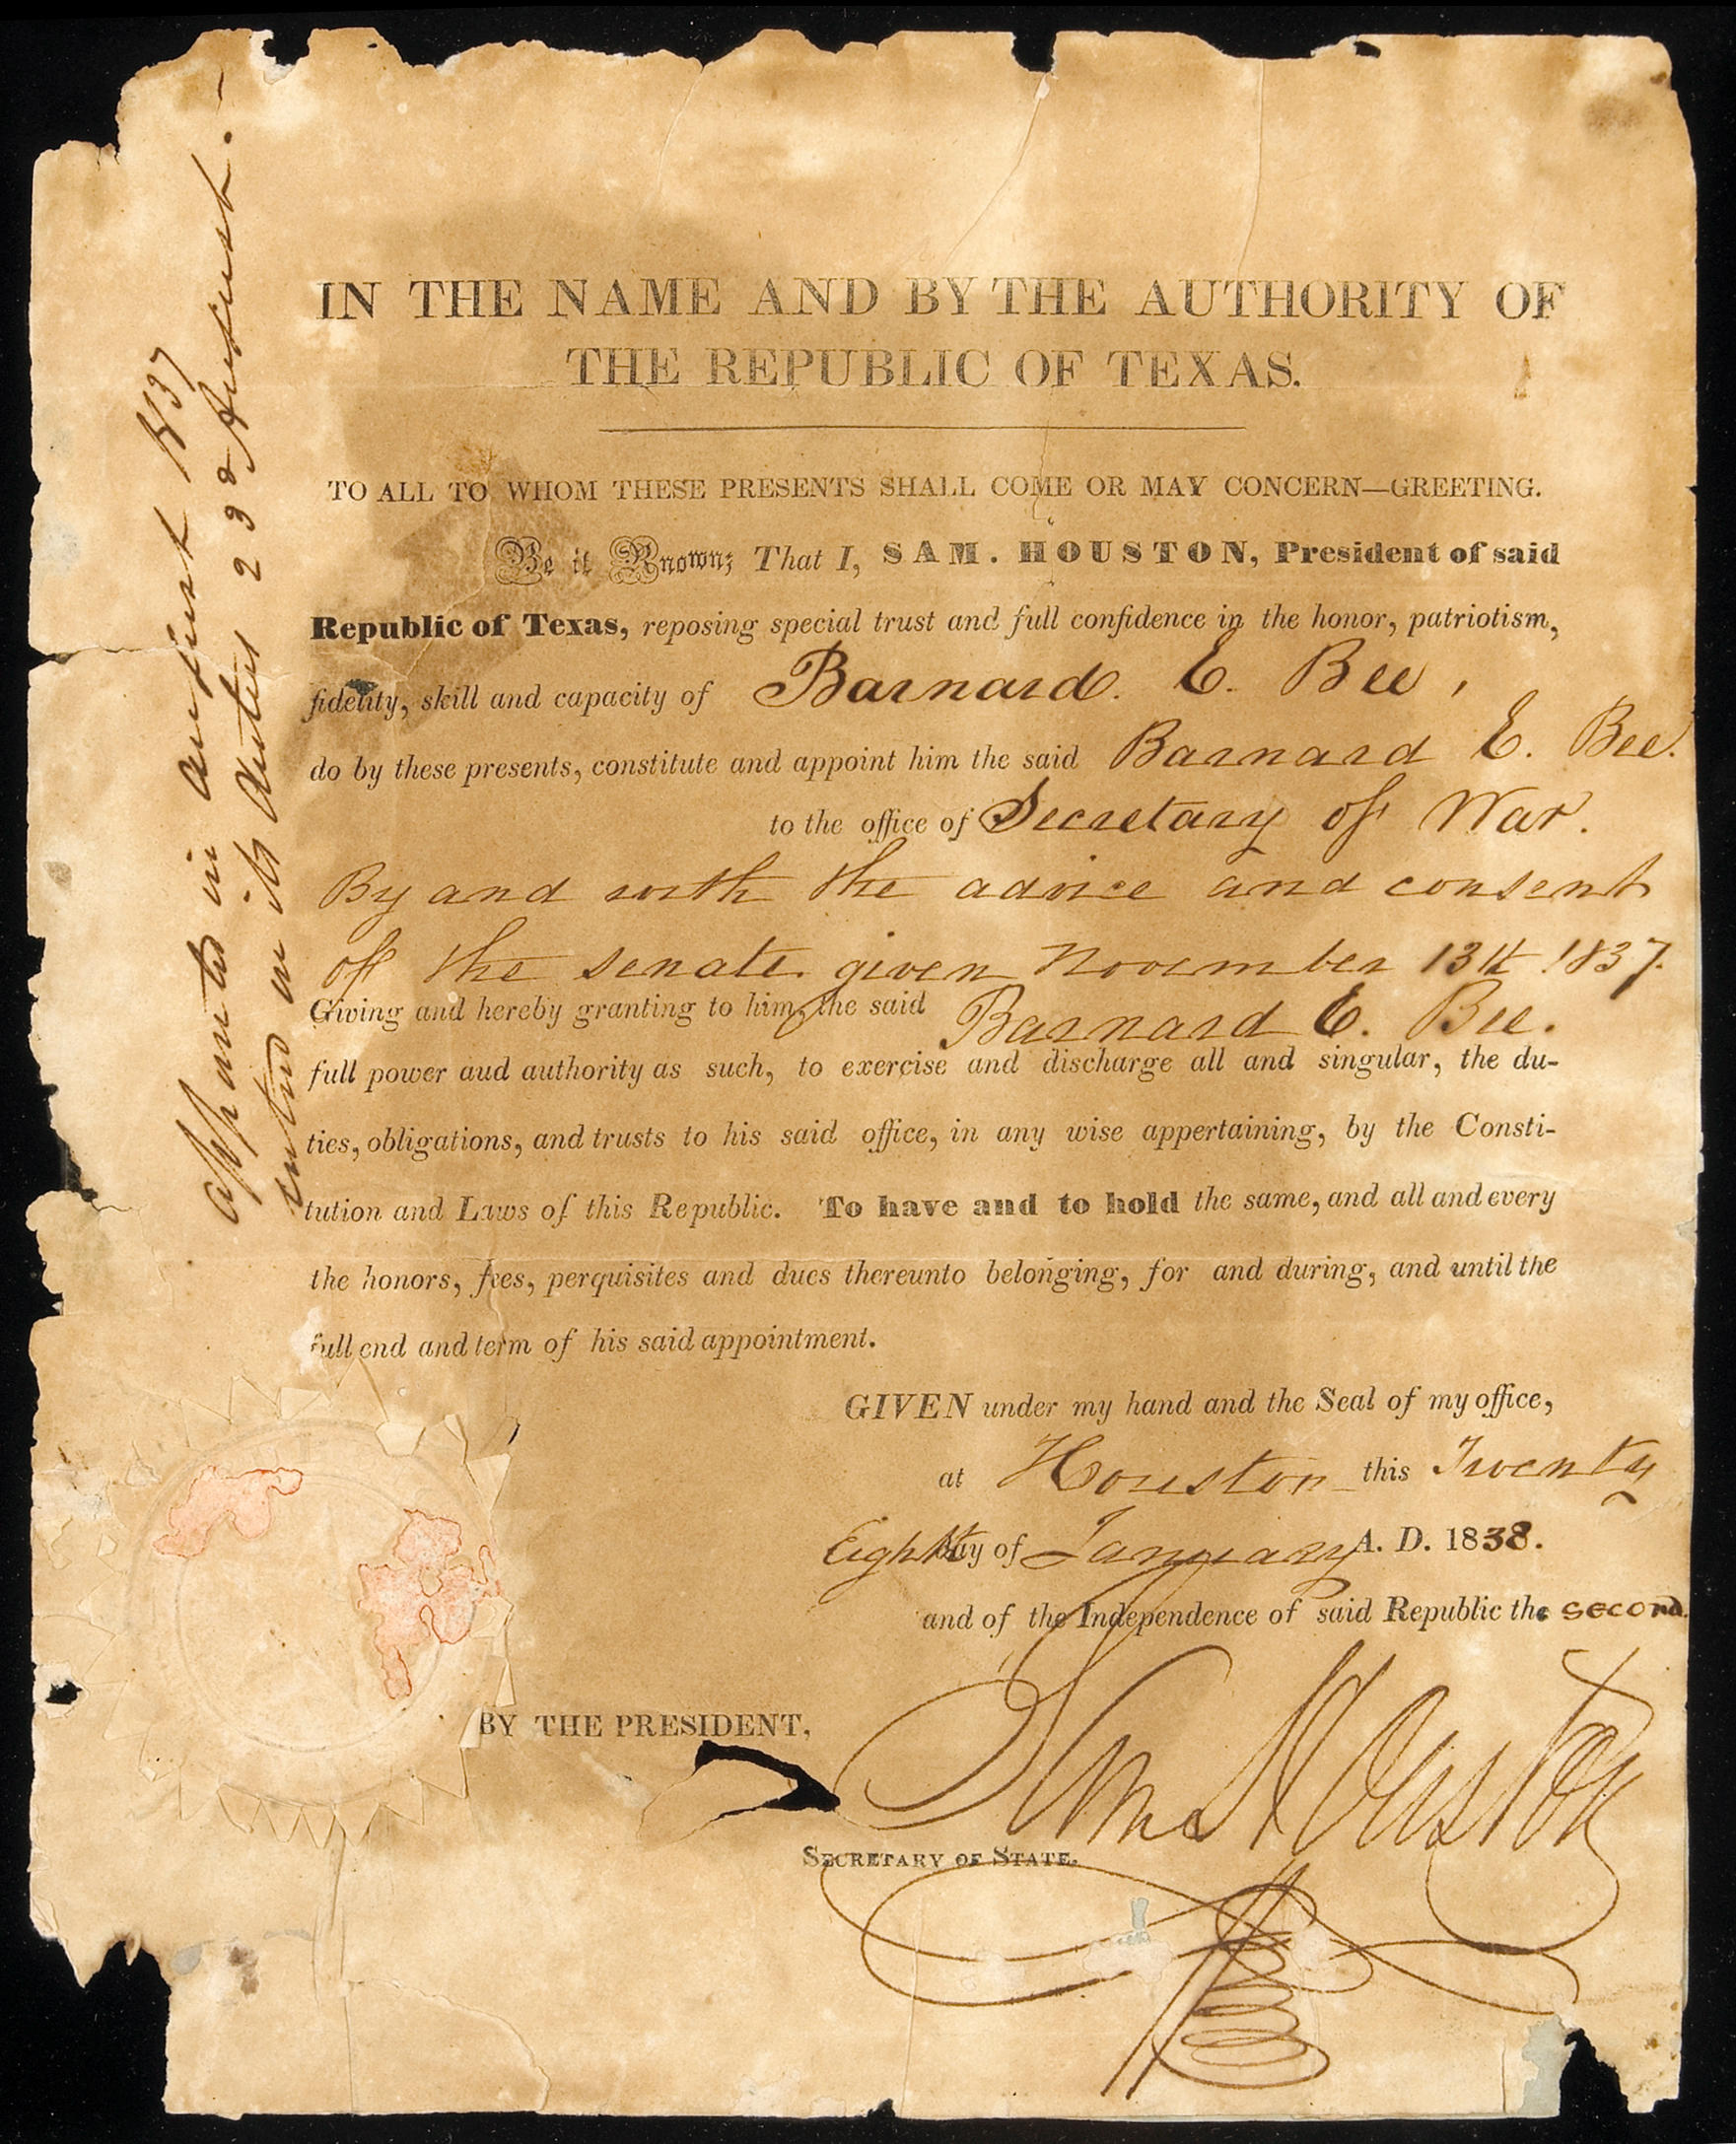 IN THE NAME AND BY THE AUTHORITY OF
THE REPUBLIC OF TEXAS.
TO ALL TO WHOM THESE PRESENTS SHALL COME OR MAY CONCERN—GREETING.
Be it Known; That I, SAM. HOUSTON, President of said
Republic of Texas, reposing special trust and full confidence in the honor, patriotism,
fidelity, skill and capacity of Barnard. E. Bee,
do by these presents, constitute and appoint him the said Barnard E. Bee.
to the office of Secretary of War.
By and with the advice and consent
of the senate. given November 13th 1837.
Giving and hereby granting to him, the said Barnard E. Bee.
full power aud authority as such, to exercise and discharge all and singular, the du-
ties, obligations, and trusts to his said office, in any wise appertaining, by the Consti-
tution and Laws of this Republic. To have and to hold the same, and all and every
the honors, fees, perquisites and dues thereunto belonging, for and during, and until the
full end and term of his said appointment.
GIVEN under my hand and the Seal of my office,
at Houston this Twenty
Eighth day of January A. D. 1838.
and of the Independence of said Republic the second.
BY THE PRESIDENT,
Sam Houston
SECRETARY OF STATE.
appointed in August 1837
entered on its duties 23d August.—